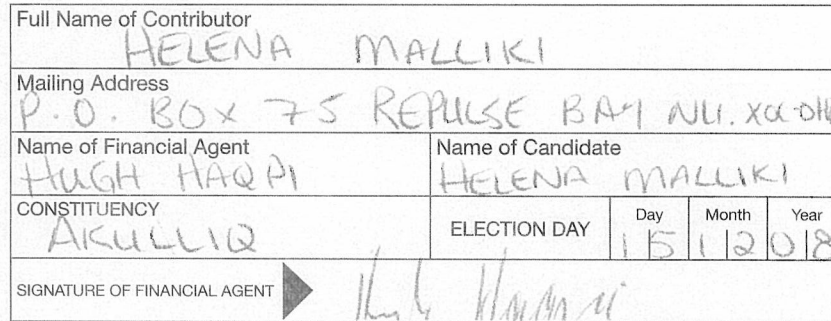 Full Name of Contributor
HELENA MALLIKI
Mailing Address
P.O. BOX 75 REPULSE BAY NU.
Name of Financial Agent
HUGH HAQPI
Name of Candidate
HELENA MALLIKI
CONSTITUENCY
AKULLIQ
ELECTION DAY
Day Month Year
15 12 08
SIGNATURE OF FINANCIAL AGENT